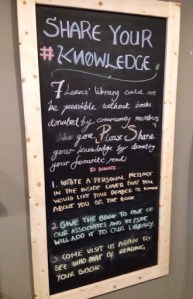 SHARE YOUR
#KNOWLEDGE
7 Leaves' library could not
be possible without books
donated by community members
like you. Please Share
your knowledge by donating
your favourite read
TO DONATE
1. WRITE A PERSONAL MESSAGE
IN THE INSIDE COVER THAT YOU
WOULD LIKE YOUR READER TO KNOW
ABOUT YOU OR THE BOOK
2. GIVE THE BOOK TO ONE OF
OUR ASSOCIATES AND
WILL ADD IT TO OUR LIBRARY.
3. COME VISIT US AGAIN TO
SEE WHO MAY BE READING
YOUR BOOK.